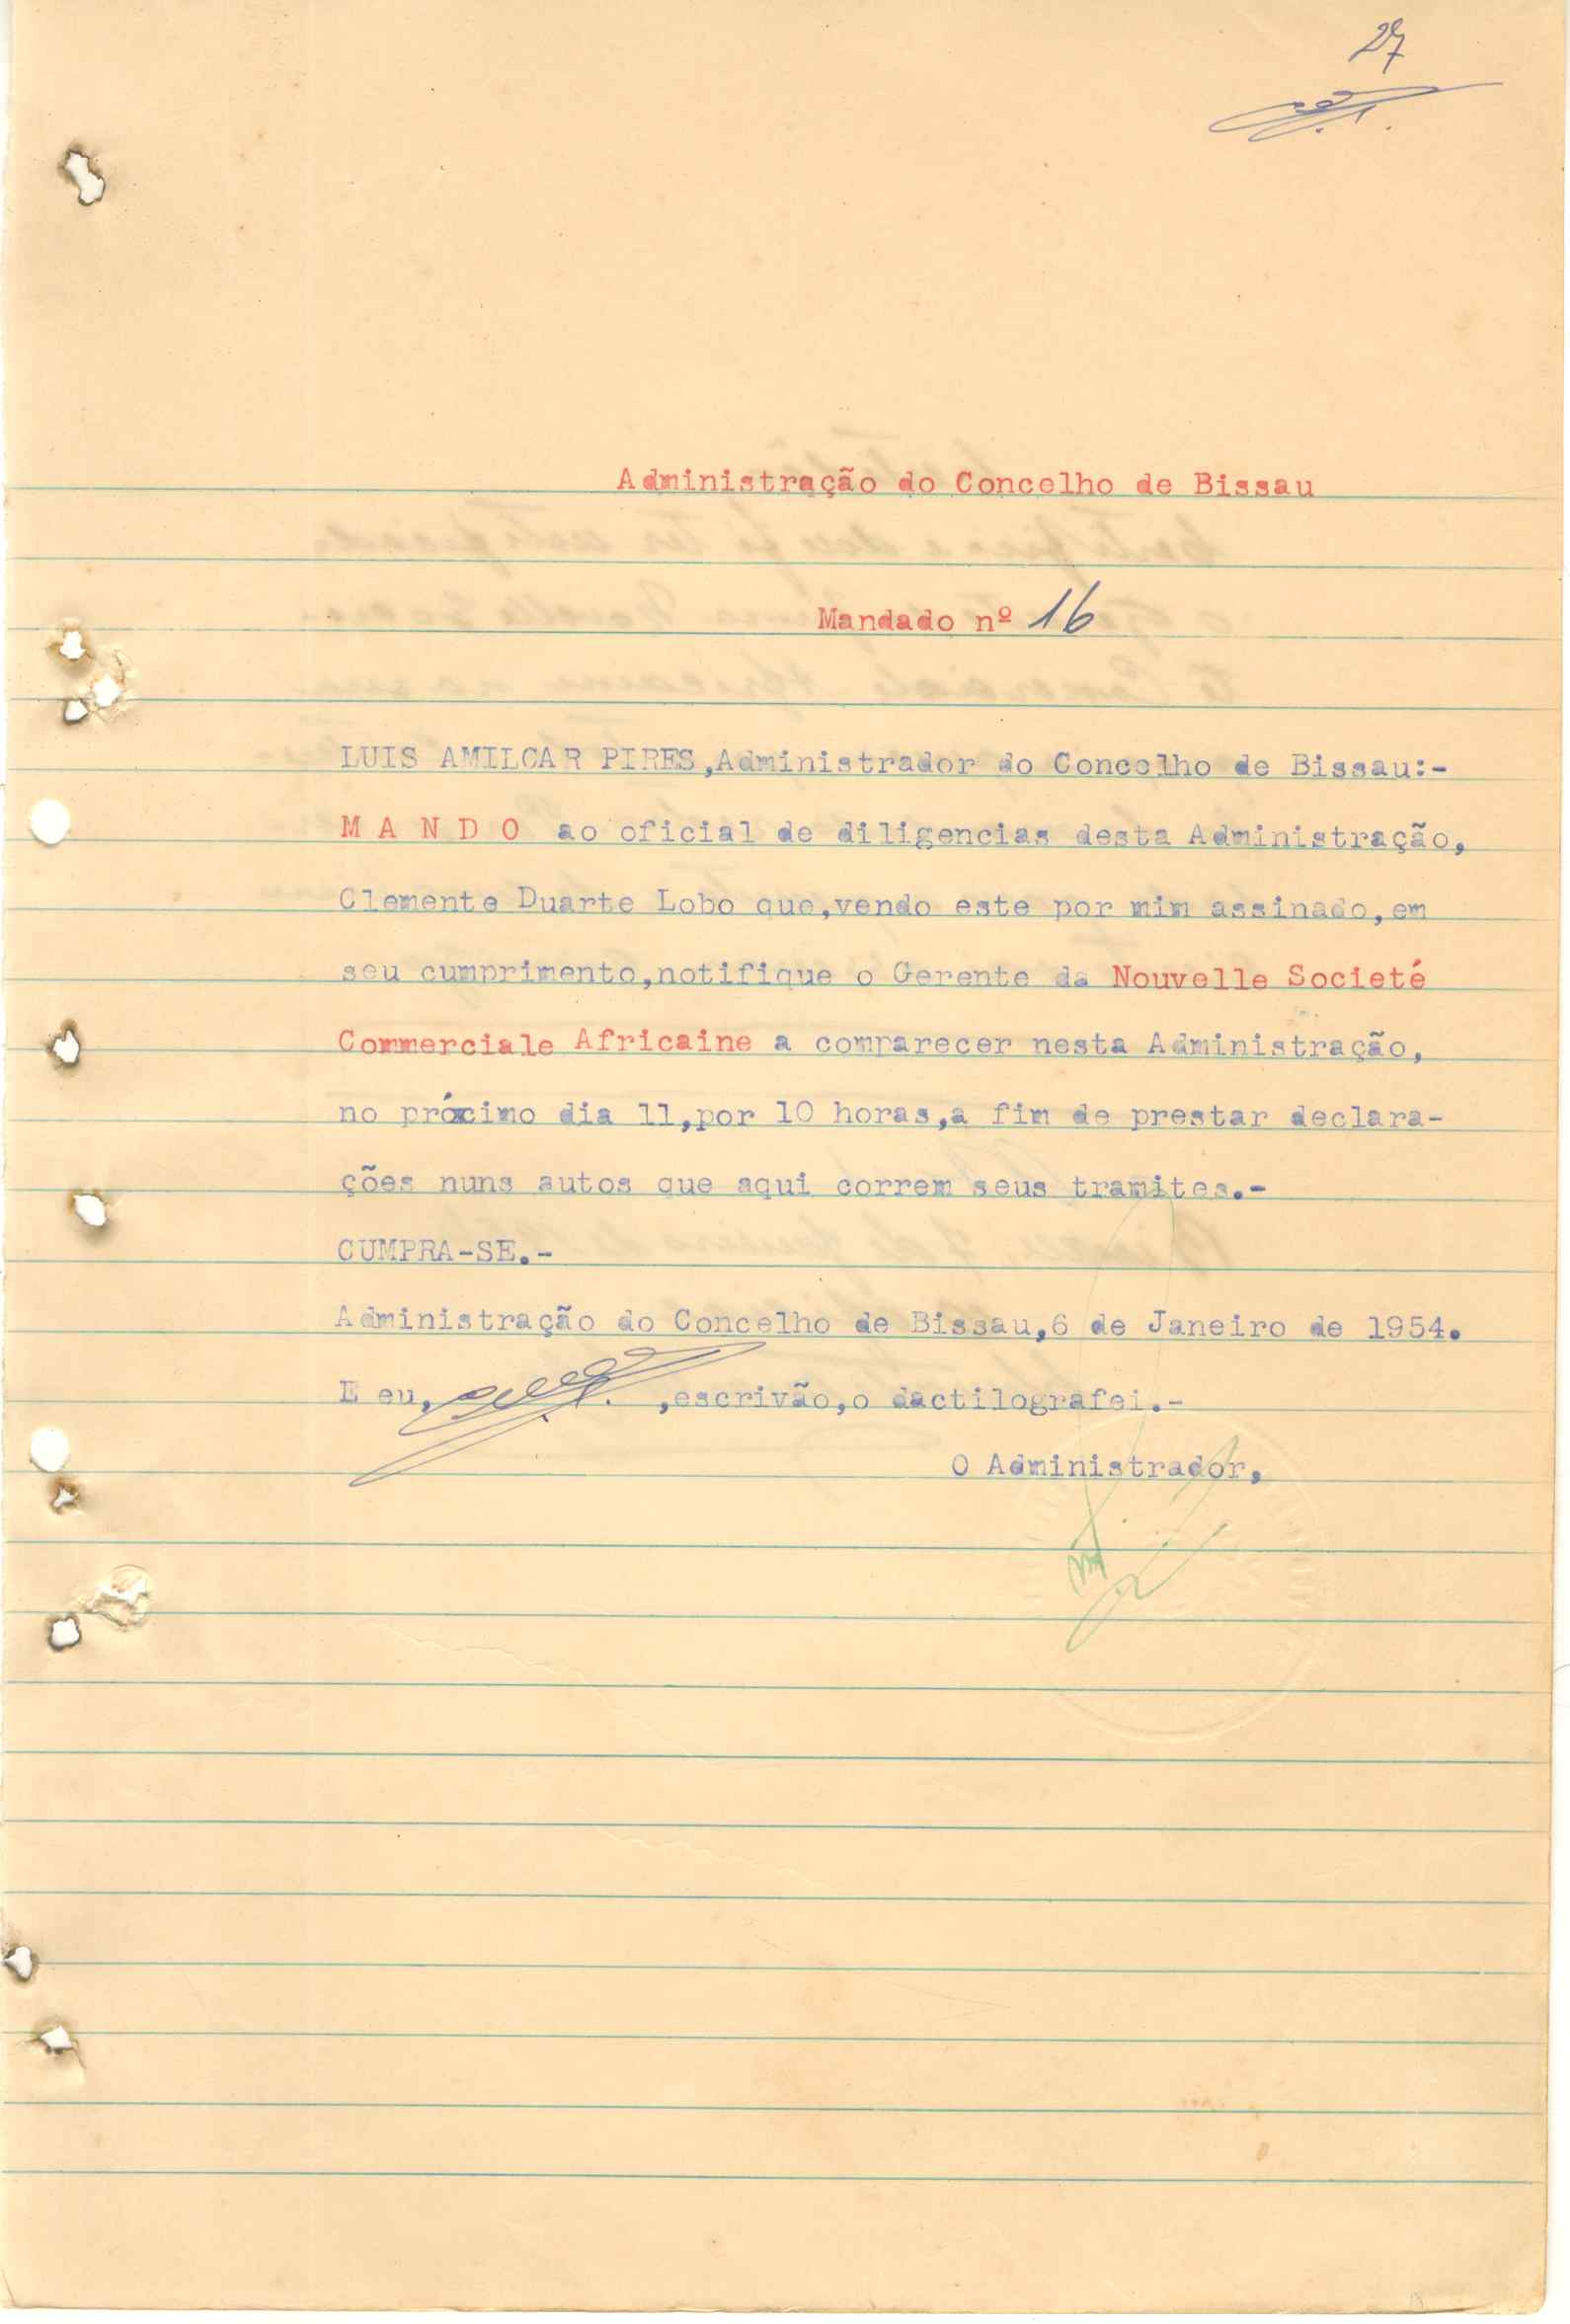 27
Administração do Concelho de Bissau
Mandado nº 16
LUIS AMILCAR PIRES,Administrador do Concelho de Bissau:-
M A N D O ao oficial de diligencias desta Administração,
Clemente Duarte Lobo que,vendo este por mim assinado,em
seu cumprimento,notifique o Gerente da Nouvelle Societé
Commerciale Africaine a comparecer nesta Administração,
no próximo dia 11,por 10 horas,a fim de prestar declara-
ções nuns autos que aqui correm seus tramites.-
CUMPRA-SE.-
Administração do Concelho de Bissau,6 de Janeiro de 1954.
E eu, ,escrivão,o dactilografei.-
O Administrador,